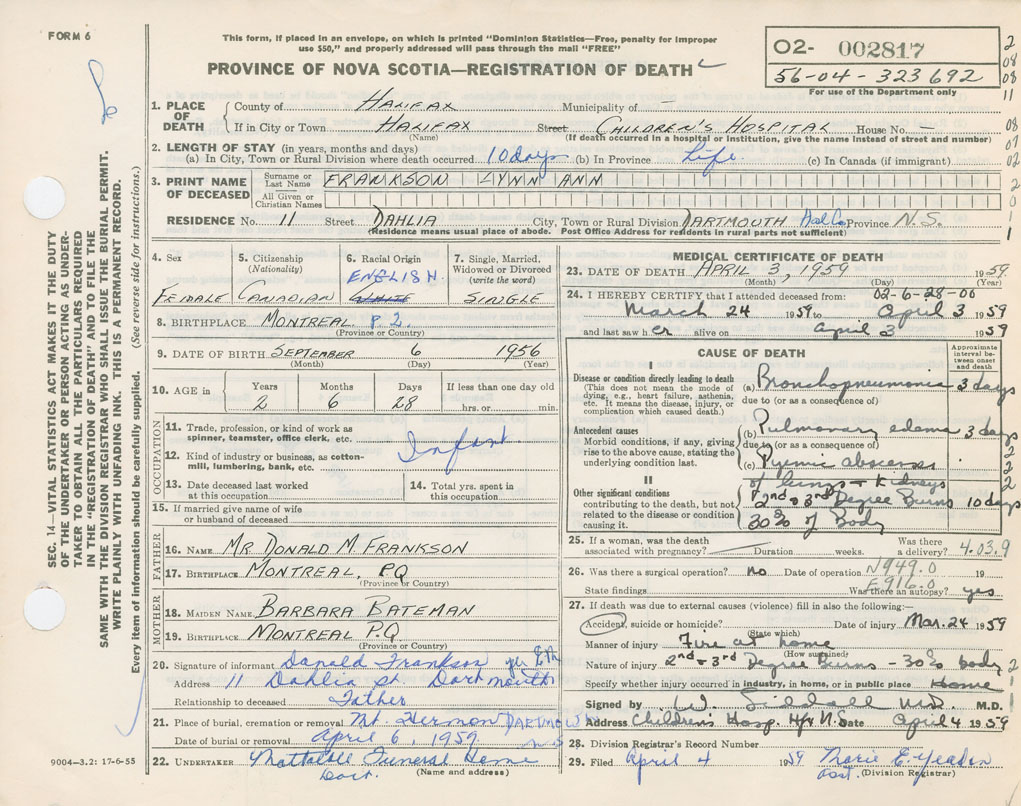 FORM 6
This form, if placed in an envelope, on which is printed "Dominion Statistics—Free, penalty for improper
use $50," and properly addressed will pass through the mail "FREE"
PROVINCE OF NOVA SCOTIA—REGISTRATION OF DEATH
02- 002817
56-04-323692
For use of the Department only
2
08
08
11
08
07
02
2
0
1
SEC. 14—VITAL STATISTICS ACT MAKES IT THE DUTY
OF THE UNDERTAKER OR PERSON ACTING AS UNDER-
TAKER TO OBTAIN ALL THE PARTICULARS REQUIRED
IN THE "REGISTRATION OF DEATH" AND TO FILE THE
SAME WITH THE DIVISION REGISTRAR WHO SHALL ISSUE THE BURIAL PERMIT.
WRITE PLAINLY WITH UNFADING INK. THIS IS A PERMANENT RECORD.
Every item of information should be carefully supplied. (See reverse side for instructions.)
1. PLACE OF DEATH County of HALIFAX Municipality of —
If in City or Town HALIFAX Street CHILDREN'S HOSPITAL House No. —
(Name) (If death occurred in a hospital or institution, give the name instead of street and number)
2. LENGTH OF STAY (in years, months and days)
(a) In City, Town or Rural Division where death occurred 10 days (b) In Province Life (c) In Canada (if immigrant)
3. PRINT NAME OF DECEASED Surname or Last Name FRANKSON LYNN ANN
All Given or Christian Names
RESIDENCE No. 11 Street DAHLIA City, Town or Rural Division DARTMOUTH Hal Co Province N.S.
(Residence means usual place of abode. Post Office Address for residents in rural parts not sufficient)
4. Sex FEMALE
5. Citizenship (Nationality) CANADIAN
6. Racial Origin ENGLISH WHITE
7. Single, Married, Widowed or Divorced (write the word) SINGLE
8. BIRTHPLACE MONTREAL P.Q.
(Province or Country)
9. DATE OF BIRTH SEPTEMBER 6 1956
(Month) (Day) (Year)
10. AGE in Years 2 Months 6 Days 28 If less than one day old hrs. or min.
OCCUPATION
11. Trade, profession, or kind of work as spinner, teamster, office clerk, etc. Infant
12. Kind of industry or business, as cotton-mill, lumbering, bank, etc.
13. Date deceased last worked at this occupation
14. Total yrs. spent in this occupation
15. If married give name of wife or husband of deceased
FATHER
16. NAME MR DONALD M. FRANKSON
17. BIRTHPLACE MONTREAL, PQ
(Province or Country)
MOTHER
18. MAIDEN NAME BARBARA BATEMAN
19. BIRTHPLACE MONTREAL P.Q.
(Province or Country)
20. Signature of informant Donald Frankson per
Address 11 Dahlia St. Dartmouth
Relationship to deceased Father
21. Place of burial, cremation or removal Mt. Hermon DARTMOUTH N.S.
Date of burial or removal April 6, 1959.
22. UNDERTAKER Mattatall Funeral Home
Dart. (Name and address)
9004—3.2: 17-6-55
MEDICAL CERTIFICATE OF DEATH
23. DATE OF DEATH APRIL 3, 1959 19 59
(Month) (Day) (Year)
24. I HEREBY CERTIFY that I attended deceased from: 02-6-28-00
March 24 1959 to April 3 1959
and last saw her alive on April 3 1959
CAUSE OF DEATH
Approximate interval between onset and death
I
Disease or condition directly leading to death
(This does not mean the mode of dying, e.g., heart failure, asthenia, etc. It means the disease, injury, or complication which caused death.)
(a) Bronchopneumonia 3 days
due to (or as a consequence of)
Antecedent causes
Morbid conditions, if any, giving rise to the above cause, stating the underlying condition last.
(b) Pulmonary edema 3 days
due to (or as a consequence of)
(c) Pyemic abscesses
of lungs + kidneys
II
Other significant conditions
contributing to the death, but not related to the disease or condition causing it.
2nd + 3rd Degree Burns 10 days
30% of Body
2
2
2
25. If a woman, was the death associated with pregnancy? Duration weeks. Was there a delivery? 4.03.9
26. Was there a surgical operation? no Date of operation N949.0 19
State findings E916.0 Was there an autopsy? yes
27. If death was due to external causes (violence) fill in also the following:—
Accident, suicide or homicide? Date of injury Mar. 24 1959
(State which)
Manner of injury Fire at home
(How sustained)
Nature of injury 2nd + 3rd Degree Burns - 30% body 2
Specify whether injury occurred in industry, in home, or in public place Home 1
Signed by M.D. M.D. 1
Address Children's Hosp. Hfx N.S. Date April 4 1959
28. Division Registrar's Record Number
29. Filed April 4 1959 Marie E. Yeadon
(Division Registrar)